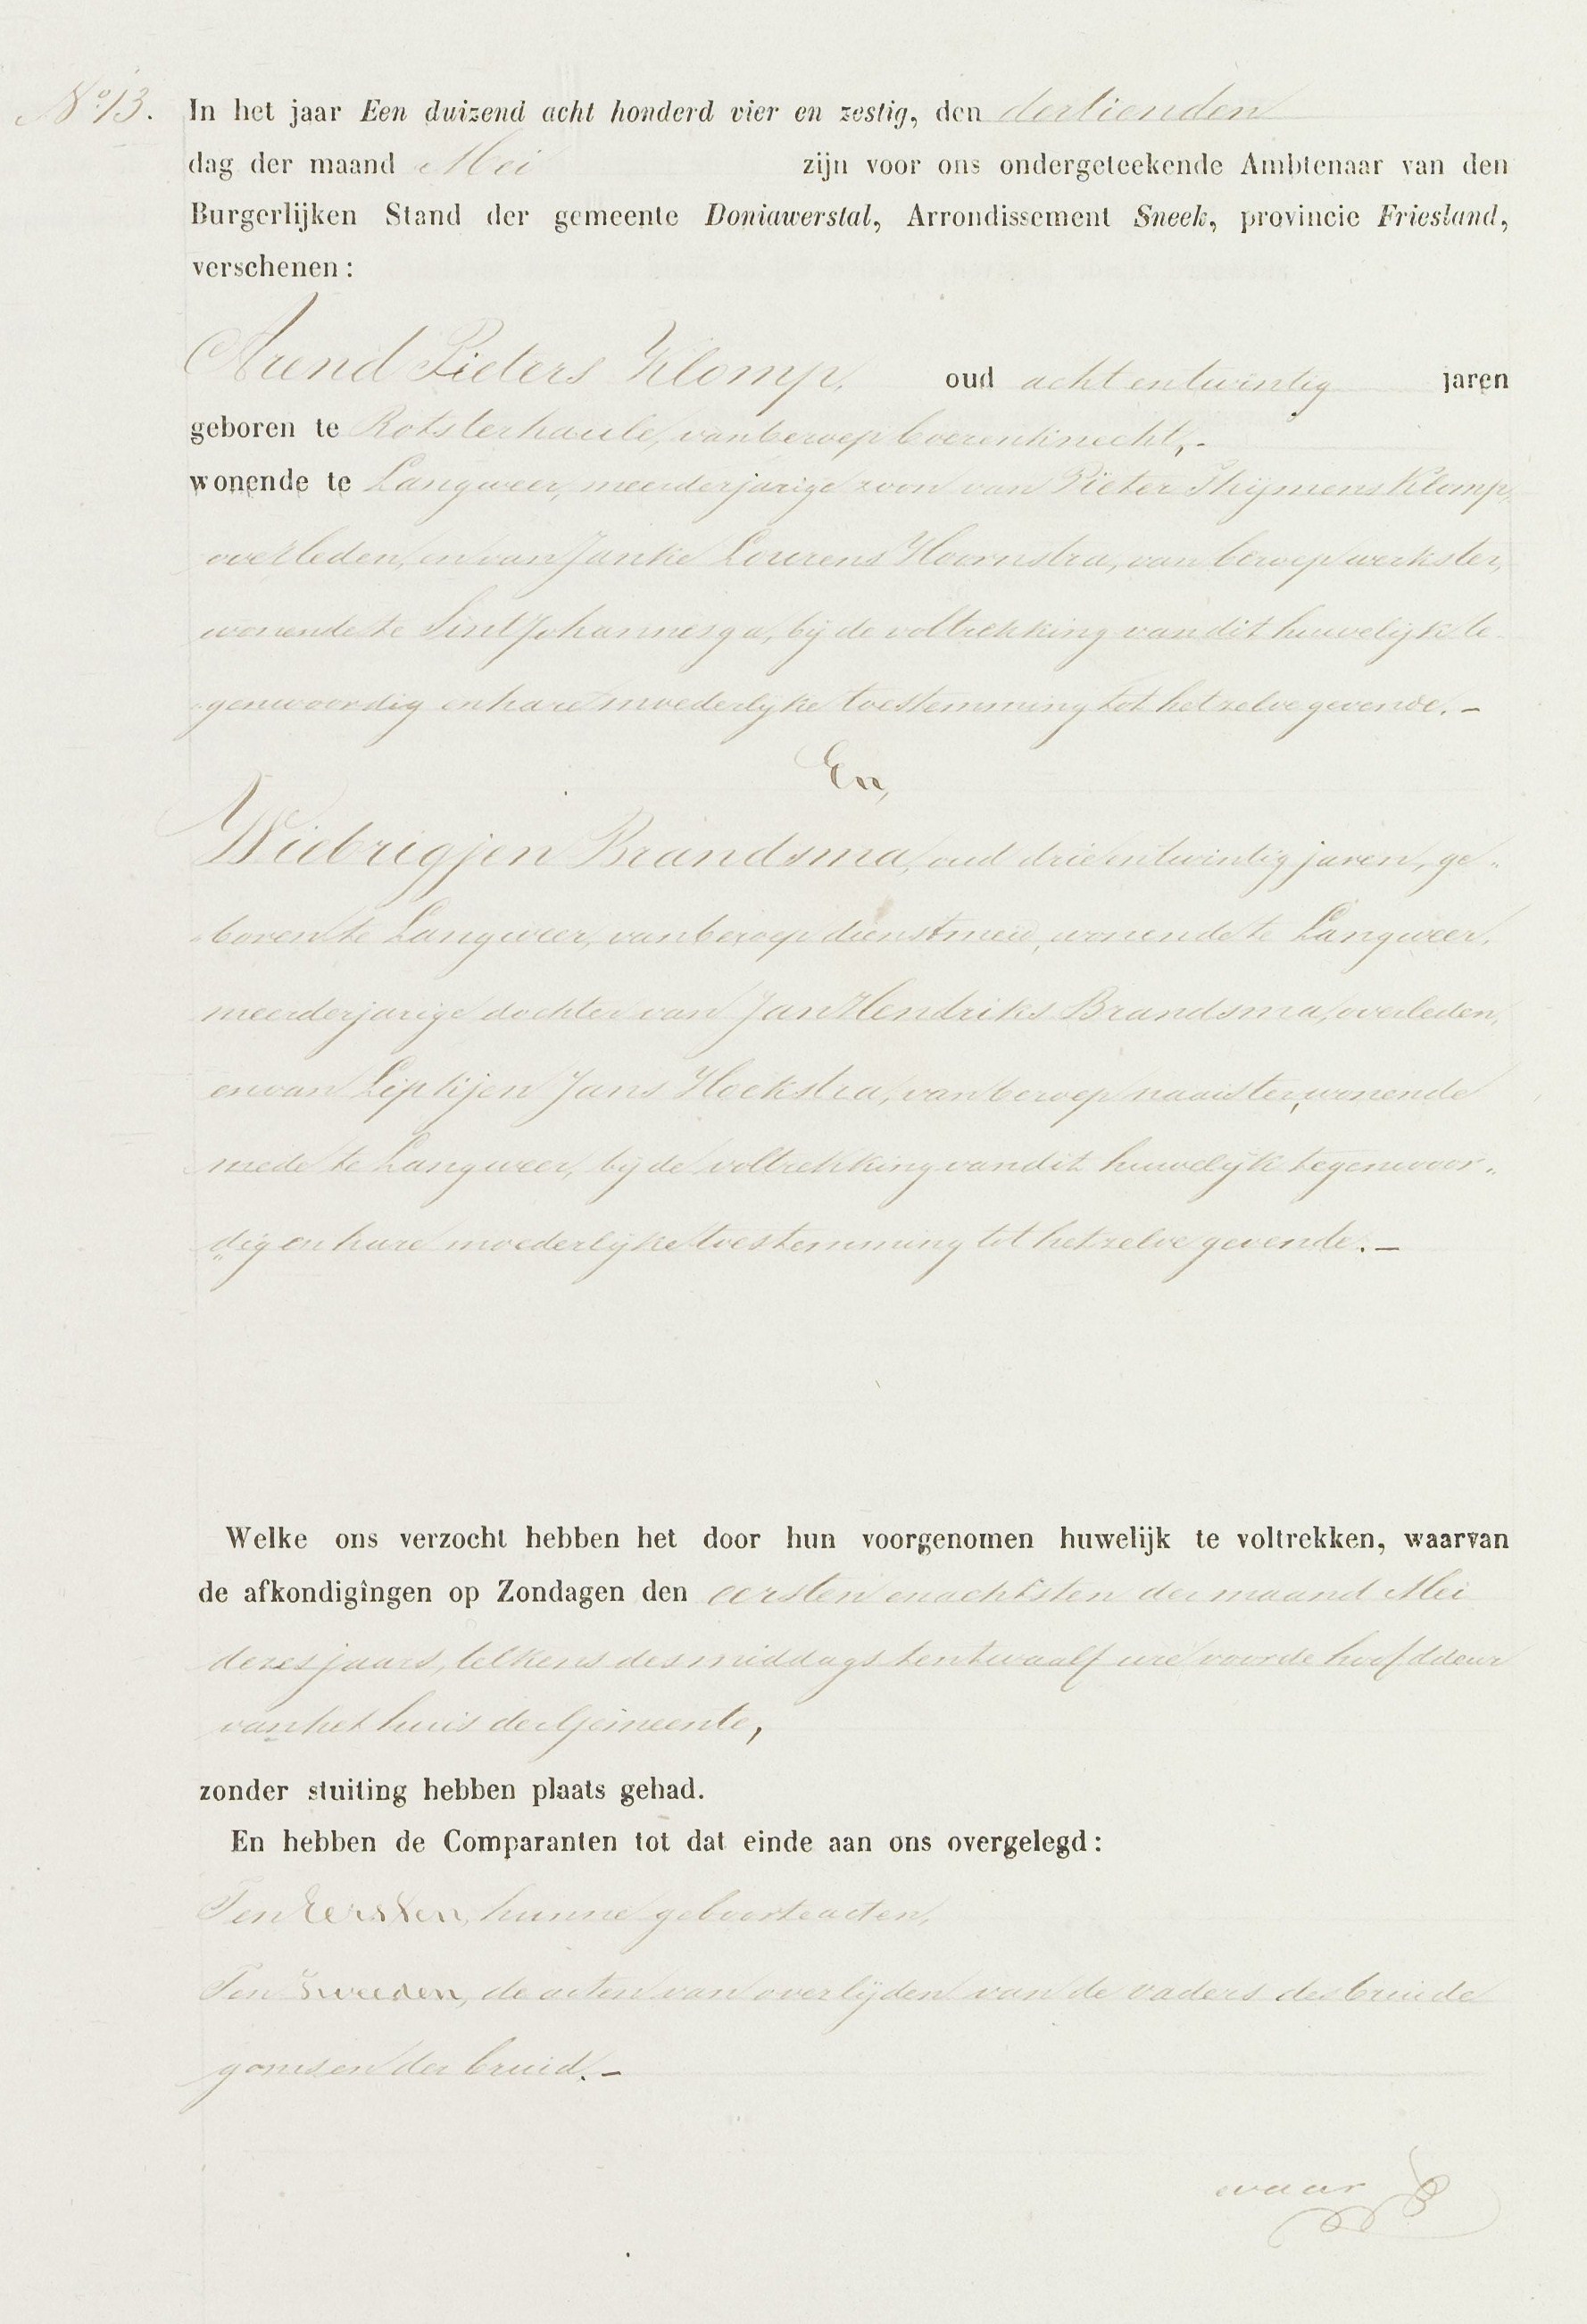 No 13. In het jaar Een duizend acht honderd vier en zestig, den dertienden
dag der maand Mei zijn voor ons ondergeteekende Ambtenaar van den
Burgerlijken Stand der gemeente Doniawerstal, Arrondissement Sneek, provincie Friesland,
verschenen:
Arend Pieters Klomp, oud acht en twintig jaren
geboren te Rotsterhaule, van beroep boerenknecht,-
wonende te Langweer, meerderjarige zoon van Pieter Thijmens Klomp,
overleden, en van Janke Lourens Hoornstra, van beroep werkster,
wonende te Sint Johannesga, bij de voltrekking van dit huwelijk te-
genwoordig en hare moederlijke toestemming tot hetzelve gevende.-
En,
Wiebrigjen Brandsma, oud drie en twintig jaren, ge-
boren te Langweer, van beroep dienstmeid, wonende te Langweer,
meerderjarige dochter van Jan Hendriks Brandsma, overleden,
en van Liptjen Jans Hoekstra, van beroep naaister, wonende
mede te Langweer, bij de voltrekking van dit huwelijk tegenwoor-
dig en hare moederlijke toestemming tot hetzelve gevende.-
Welke ons verzocht hebben het door hun voorgenomen huwelijk te voltrekken, waarvan
de afkondigingen op Zondagen den eersten en achtsten der maand Mei
dezes jaars, telkens des middags ten twaalf ure voor de hoofddeur
van het huis der Gemeente,
zonder stuiting hebben plaats gehad.
En hebben de Comparanten tot dat einde aan ons overgelegd:
Ten Eersten, hunne geboorteacten,
Ten Tweeden, de acten van overlijden van de vaders des bruide
goms en der bruid.-
waar